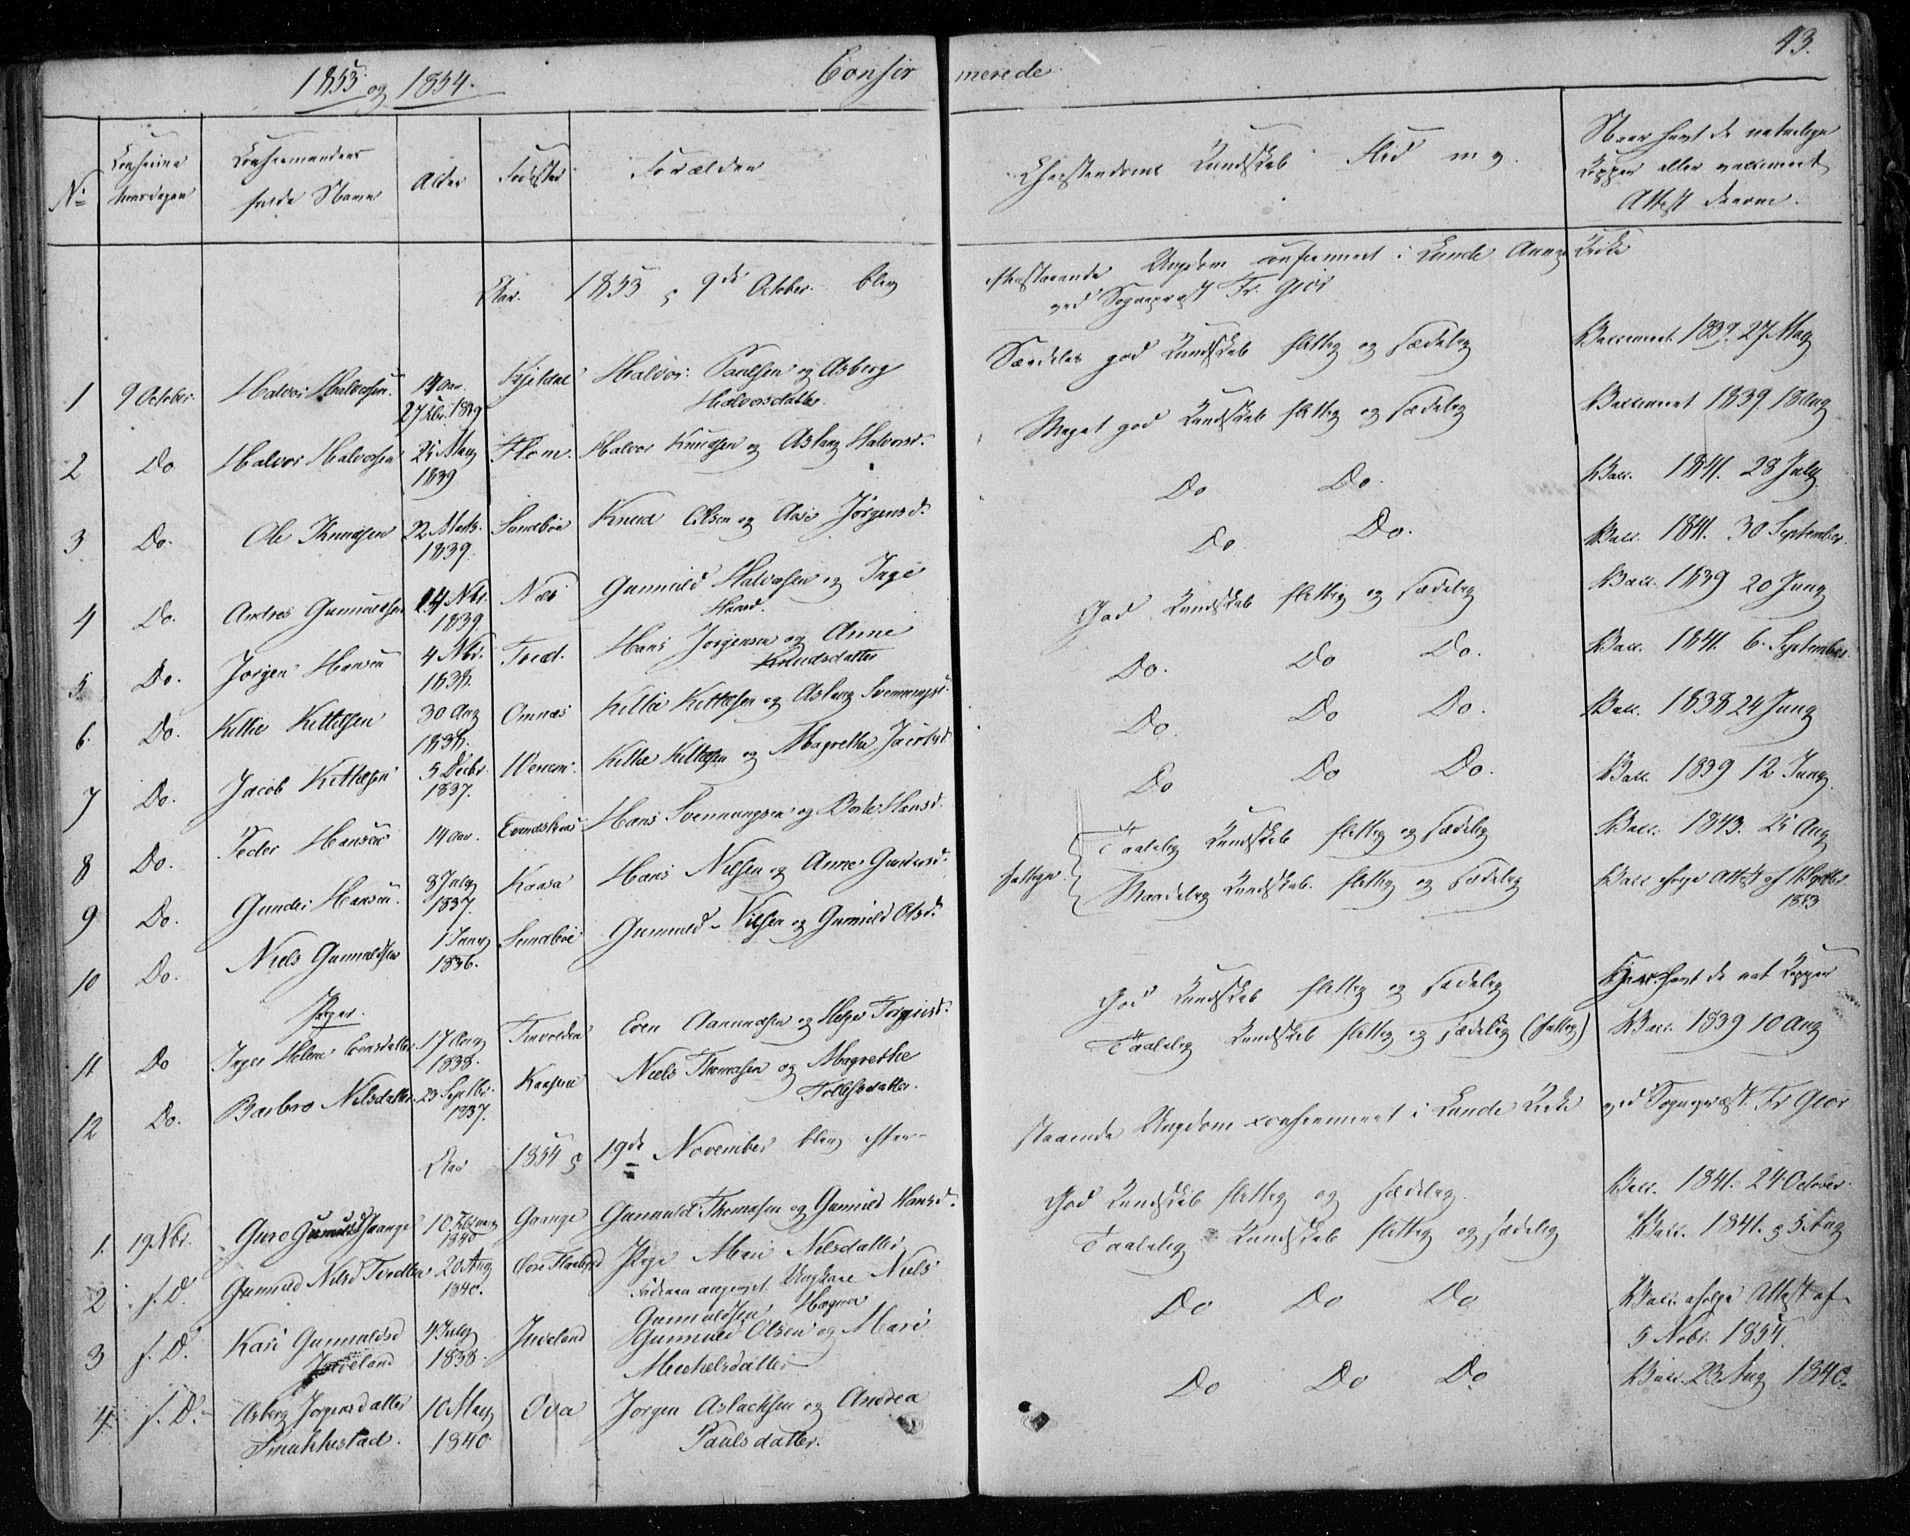 43.
1853 og 1854. Confirmerede
No
Confirma- tionsdagen
Confirmandens fulde Navn
Alder
Fødested
Forældre
Christendoms Kundskab Flid m. v.
Naar havt de naturlige Kopper eller vaccineret Attest derom.
Aar 1853 9de October blev efterstaaende Ungdom confirmeret i Lunde Kirke
ved Sognepræst Fr. Giør
1 9 October. Halvor Halvorsen. Kjeldal Halvor Paulsen og Asberg Halvorsdatter. Særdeles god Kundskab flittig og sædelig Vaccineret 1839. 27 May
2 Do Halvor Halvorsen 25 May 1839 Flom. Halvor Knudsen og Aslaug Halvorsd. Meget god Kundskab flittig og sædelig Vaccineret 1839 18 Aug
3 Do. Ole Knudsen 22 Marts 1839. Sundbøe Knud Olsen og Aase Jørgensd. Do Do. Vacc. 1841. 28 July
4 Do. Andres Gunnuldsen 14 Nbr. 1839 Næs Gunnuld Halvorsen og Inge Hansd. Do. Do. Vacc. 1841. 30 September.
5 Do. Jørgen Hansen 4 Nbr. 1838. Hans Jørgensen og Anne Knudsdatter God Kundskab flittig og sædelig Vacc. 1839 20 Juny
6. Do. Kittil Kittilsen 30 Aug 1838. Omnæs Kittil Kittilsen og Aslaug Svennungsd. Do. Do Do. Vacc. 1841. 6. September.
7 Do. Jacob Kittilsen 5 Decbr. 1837. Kittil Kittilsen og Magrethe Jacobsd. Do. Do Do. Vacc. 1838 24 Juny
8 Do. Peder Hansen 14 Aar. Hans Svennungsen og Hansd. Do Do Do. Vacc. 1839 12 Juny.
9 Do. Gunder Hansen. 8 July 1837. Kaasa Hans Nilsen og Anne Gundersd. Taalelig Kundskab flittig og sædelig Vacc. 1843. 25 Aug
10 Do. Niels Gunnuldsen 1 1836. Sundbøe Gunnuld Nilsen og Gunnild Olsd. Maadelig Kundskab flittig og sædelig Vacc. ifølge Attest af 1853
Piger.
11 Do Inger Helene Evensdatter. 17 Aug 1838. Even Aanundsen og Helge Torgiusd. God Kundskab flittig og sædelig havt de nat. Kopper
12 Do. Barbro Nilsdatter 23 Septbr. 1837. Kaasene Niels Thomasen og Magrethe Tollefsdatter. Taalelig Kundskab flittig og sædelig (fattig) Vacc. 1839 10 Aug
Aar 1854 19de November blev efterstaaende Ungdom confirmeret i Lunde Kirke ved Sognepræst Fr Giør
1. 19 Nbr. Gure Grange 10 Februar 1840 Grange Gunnuld Thomasen og Gunnild Hansd. God Kundskab flittig og sædelig Vacc. 1841. 24 October.
2 f. D. Gunnild Nilsd 20 Aug 1840. Pige Mari Nilsdatter Fader angivet Ungkarl Niels Gunnuldsen Taalelig Kundskab flittig og sædelig Vacc. 1841. 5 Aug
3 f. D. Kari Gunnuldsd Juveland 4 July 1838. Juveland Gunnuld Olsen og Mari Mechelsdatter Do Do Do Vacc. ifølge Attest af 5 Nobr. 1854.
4. f. D. Asberg Jørgensdatter Smukkestad. 10 May 1840 Ova Jørgen Aslachsen og Andrea Paulsdatter. Do Do Do Vacc. 23 Aug 1840.